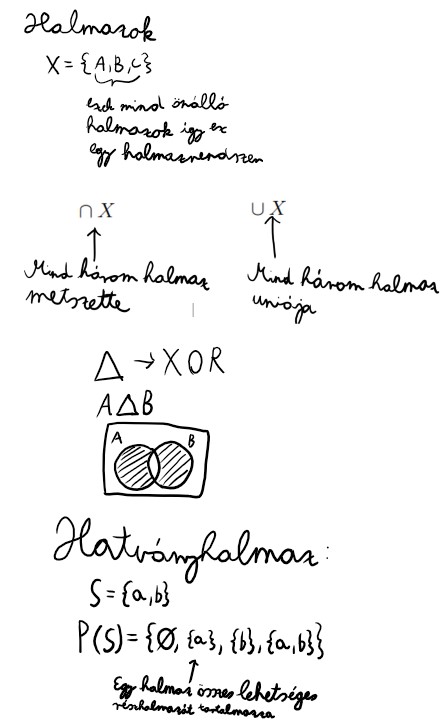 Halmazok
X = {A,B,C}
ezek mind önálló
halmazok így ez
egy halmazrendszer
∩ X
∪ X
Mind három halmaz
metszette
Mind három halmaz
uniója
Δ → XOR
AΔB
A B
Hatványhalmaz:
S = {a,b}
P(S) = {Ø, {a}, {b}, {a,b}}
Egy halmaz összes lehetséges
részhalmazát tartalmazza